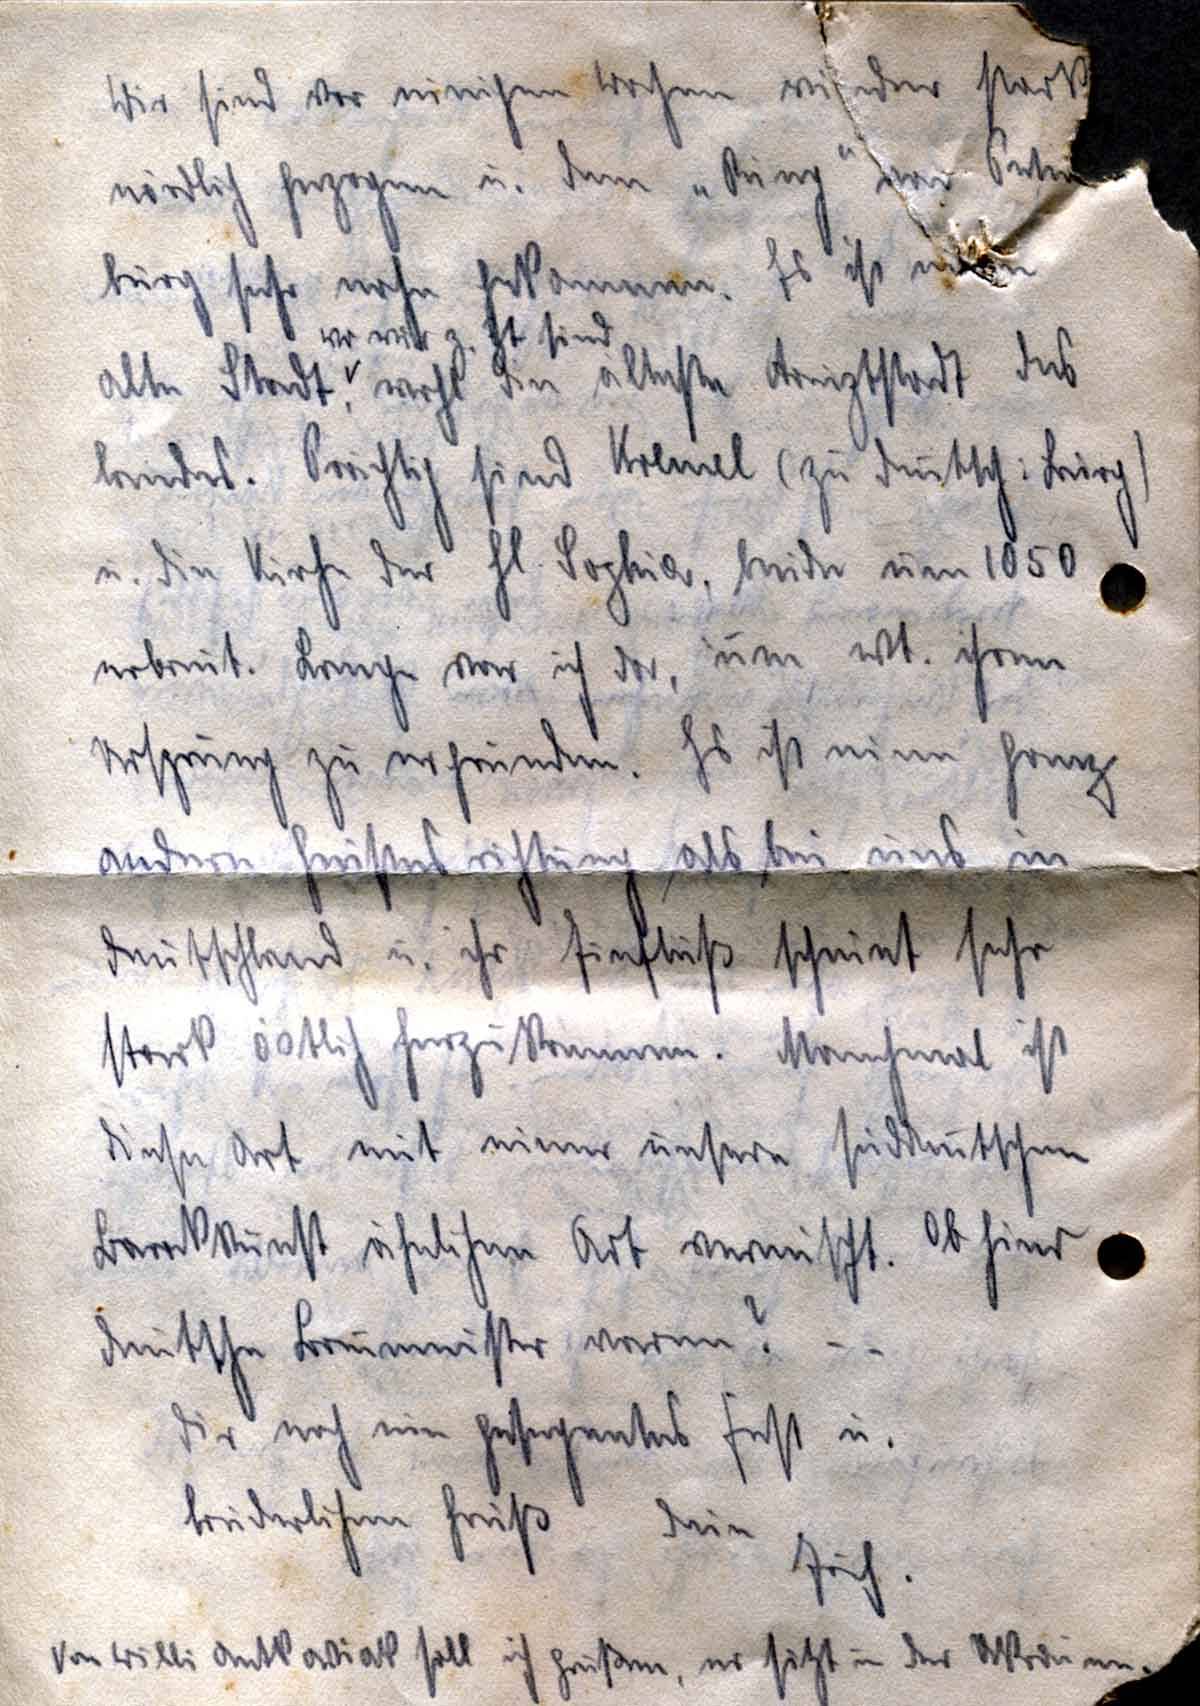 Wir sind vor einigen Wochen wieder stark
nördlich gezogen u. dem „Ring" von
burg sehr nahe gekommen. Es ist eine
wo wir z. Zt sind
alte Stadt, wohl die älteste des
Landes. Prächtig sind Kreml (zu deutsch: Burg)
u. die Kirche der hl. Sophia, beide um 1050
erbaut. Lange war ich dor, um evt. ihren
Ursprung zu ergründen. Es ist eine ganz
andere Geistesrichtung als bei uns in
Deutschland u. ihr Einfluß scheint sehr
stark östlich herzukommen. Manchmal ist
diese Art mit einer unsere süddeutschen
Barockkunst ähnlichen Art vermischt. Ob hier
deutsche Baumeister waren? --
Dir noch ein gesegnetes Fest u.
brüderlichen Gruß Dein
Von Willi soll ich grüßen, er sitzt in der Ukraine.